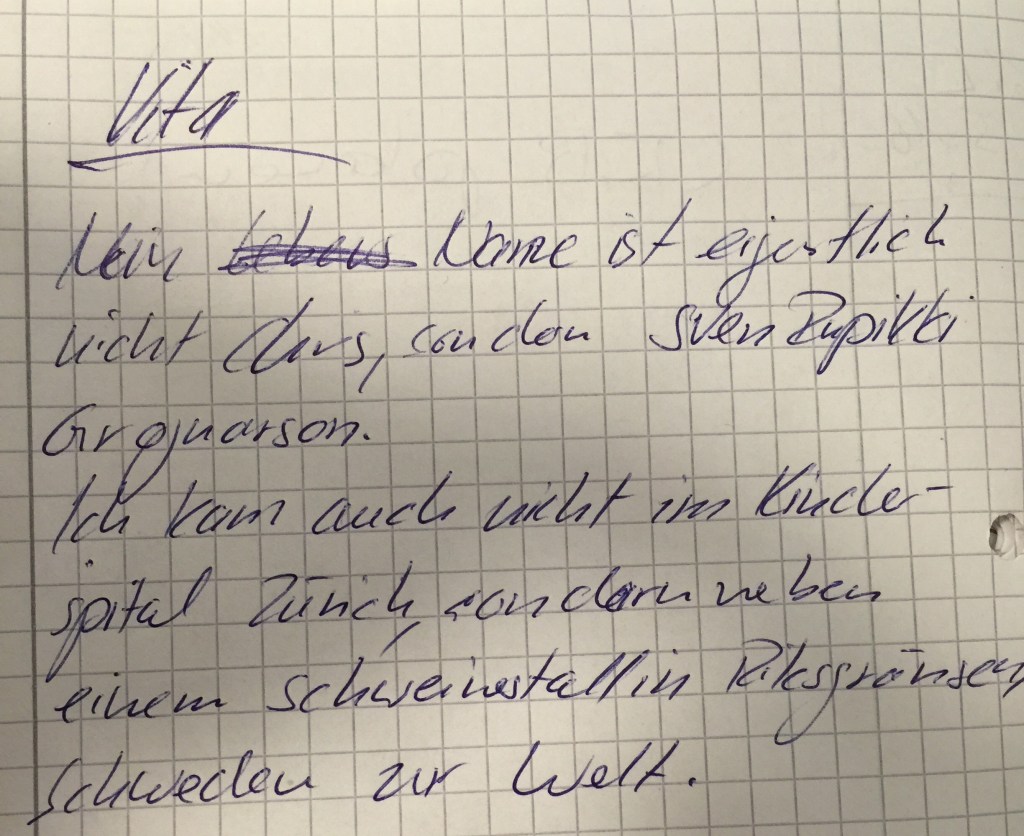 Vita
Mein Name ist eigentlich
nicht Chris, sondern Sven
Ich kam auch nicht im Kinder-
spital Zürich, sondern neben
einem Schweinestall in Riksgränsen,
Schweden zur Welt.